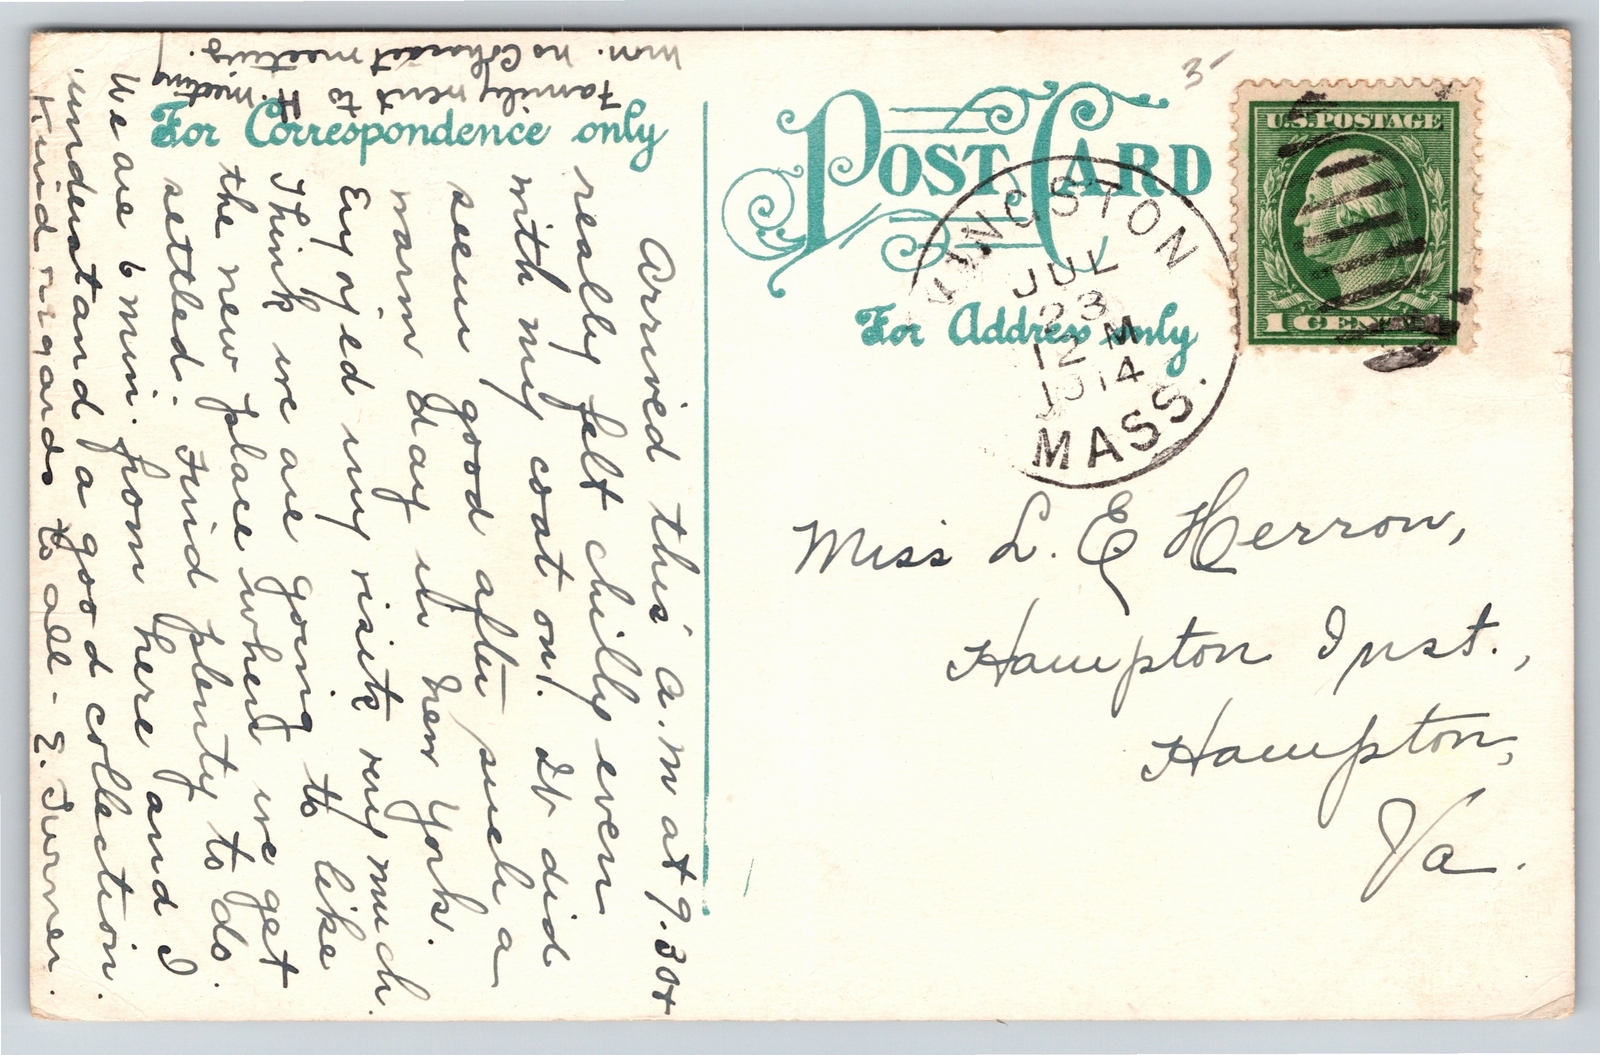 For Correspondence only
POST CARD
For Address only
U.S. POSTAGE
1 CENT
KINGSTON
JUL
23
12 M
1914
MASS.
3-
Miss L. E Herron,
Hampton Inst.,
Hampton,
Va.
Arrived this a.m at 9.30
really felt chilly even
with my coat on. It did
seem good after such a
warm day in New York.
Enjoyed my visit very much
Think we are going to like
the new place when we get
settled. Find plenty to do.
We are 6 min. from here and I
understand a good collection.
Kind regards to all - E. Turner.
Family went to H. meeting
mon. no Cohasset meeting.